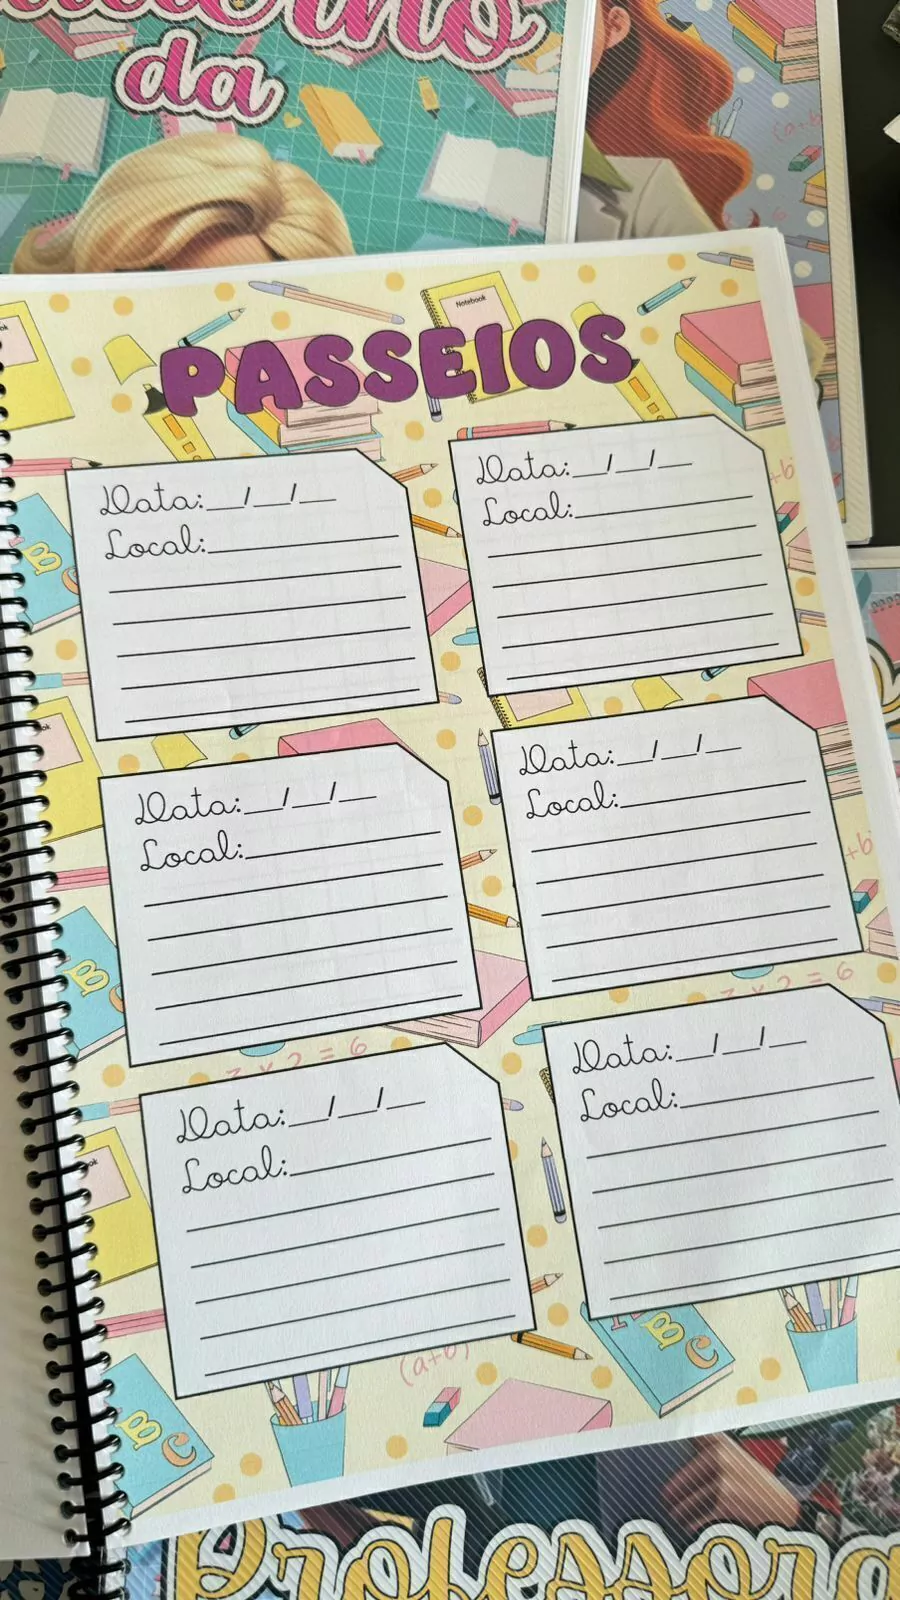 da
Notebook
PASSEIOS
Data:__/__/__
Local:
Data:__/__/__
Local:
Data:__/__/__
Local:
Data:__/__/__
Local:
Data:__/__/__
Local:
Data:__/__/__
Local:
= 6
= 6
(a+b)
B C
B C
Professora